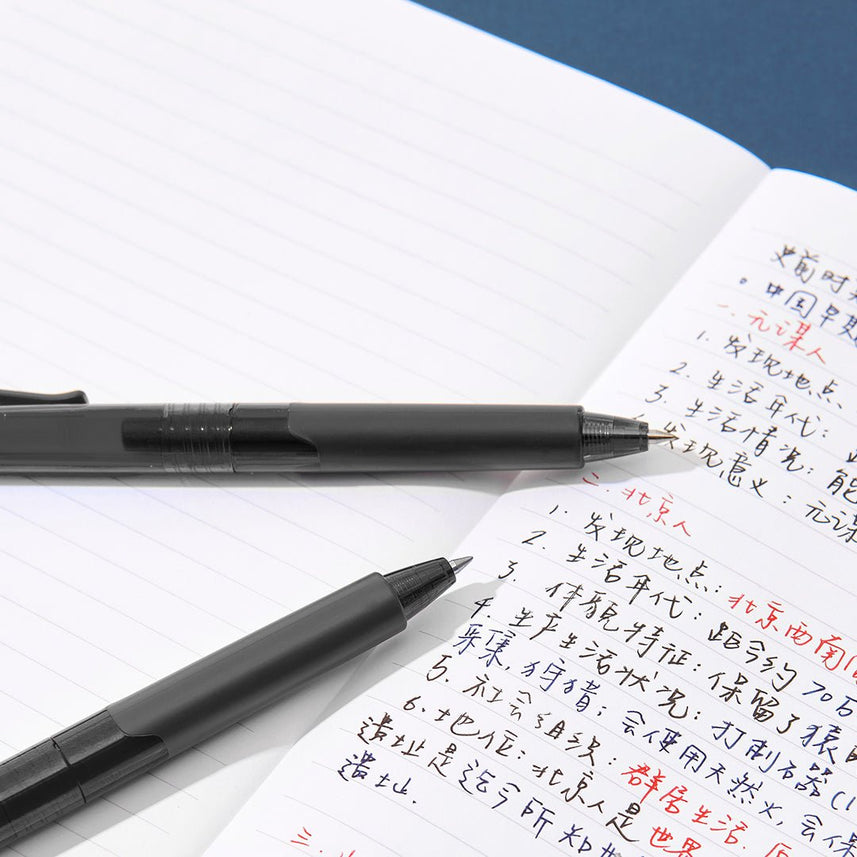 史前时
。中国早期
一、元谋人
1. 发现地点、
2. 生活年代：
3. 生活情况：能
发现意义：元谋
二、北京人
1. 发现地点：北京西南周
2. 生活年代：距今约70万
3. 体貌特征：保留了猿
4. 生产生活状况：打制石器
采集，狩猎；会使用天然火，会保
5. 社会组织：群居生活
6. 地位：北京人是世界
遗址是迄今所知
遗址.
三、